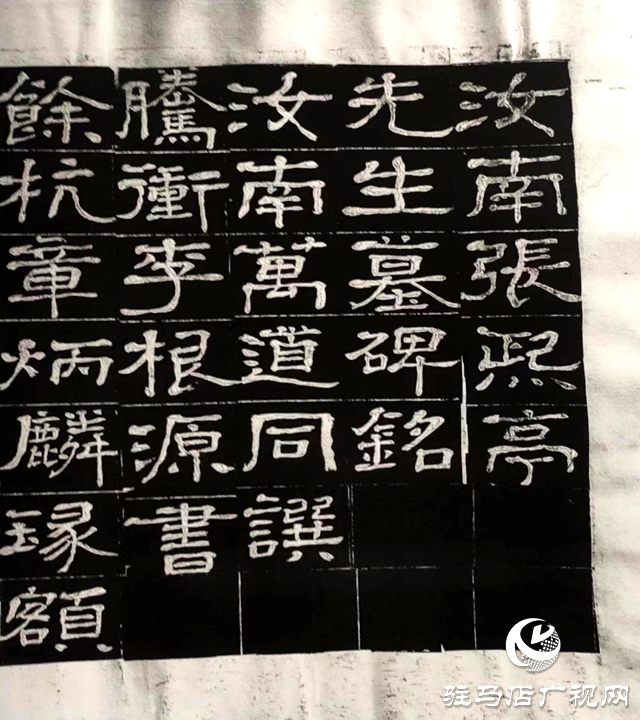 汝南張熙亭
先生墓碑銘
汝南萬道同譔
騰衝李根源書
餘杭章炳麟篆額
驻马店广视网